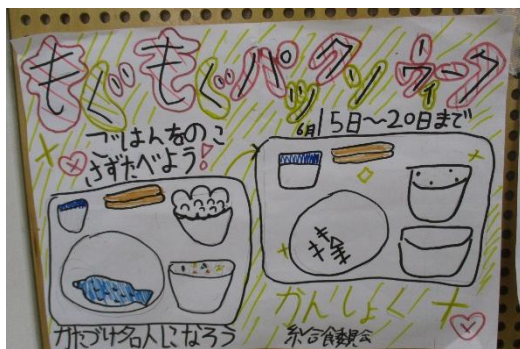 もぐもぐパックンウィーク
6月15日〜20日まで
ごはんをのこ
さずたべよう!
かんしょく
かたづけ名人になろう
給食委員会